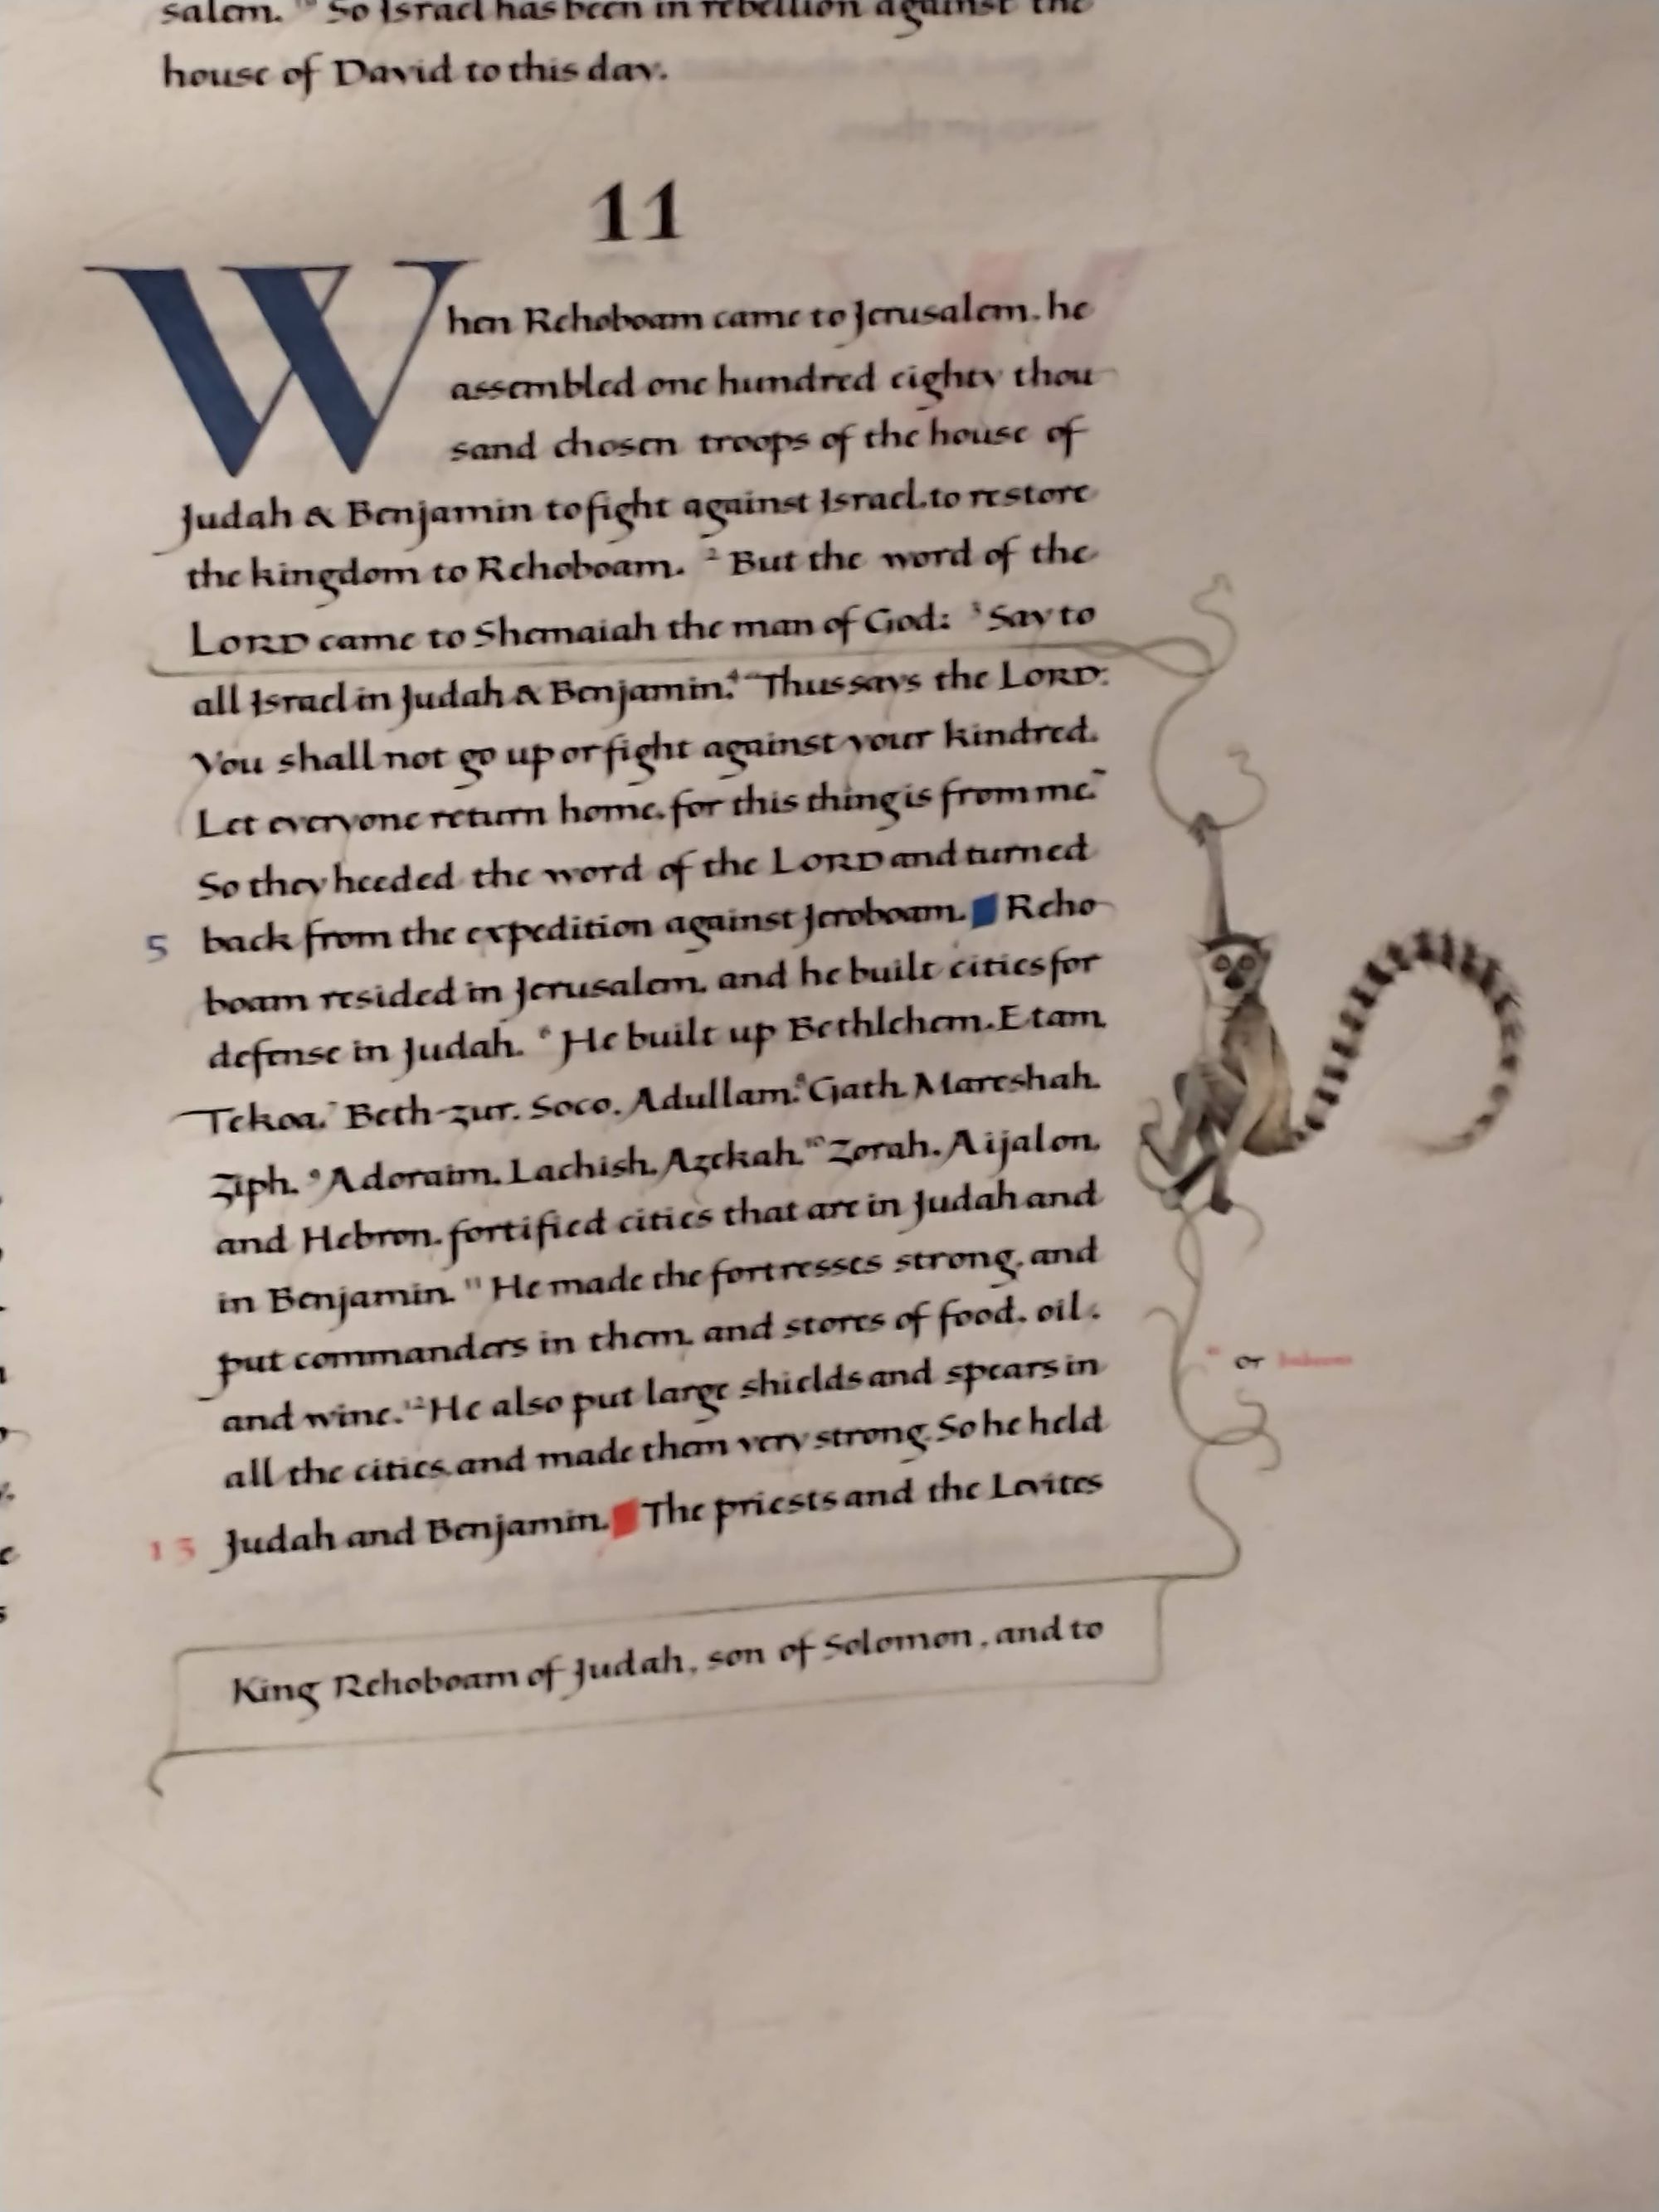 salem. 19 So Israel has been in rebellion against the
house of David to this day.
11
When Rehoboam came to Jerusalem, he
assembled one hundred eighty thou
sand chosen troops of the house of
Judah & Benjamin to fight against Israel, to restore
the kingdom to Rehoboam. 2 But the word of the
LORD came to Shemaiah the man of God: 3 Say to
all Israel in Judah & Benjamin, 4 "Thus says the LORD:
You shall not go up or fight against your kindred.
Let everyone return home, for this thing is from me."
So they heeded the word of the LORD and turned
5 back from the expedition against Jeroboam. Reho
boam resided in Jerusalem, and he built cities for
defense in Judah. 6 He built up Bethlehem, Etam,
Tekoa, 7 Beth-zur, Soco, Adullam, 8 Gath, Mareshah,
Ziph, 9 Adoraim, Lachish, Azekah, 10 Zorah, Aijalon,
and Hebron, fortified cities that are in Judah and
in Benjamin. 11 He made the fortresses strong, and
put commanders in them, and stores of food, oil,
and wine. 12 He also put large shields and spears in
all the cities, and made them very strong. So he held
13 Judah and Benjamin. The priests and the Levites
or
King Rehoboam of Judah, son of Solomon, and to